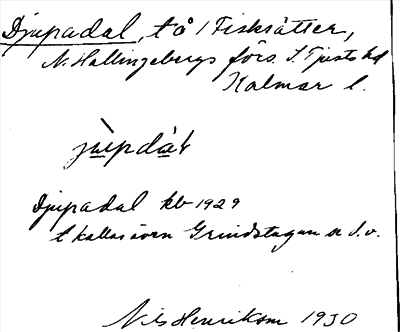 Djupadal, t å / Fisksätter,
N. Hallingebergs förs. S. Tjusts hd
Kalmar l.
Djupadal kb 1929
t kallas även Grindstugan
Nils Henrikson 1930